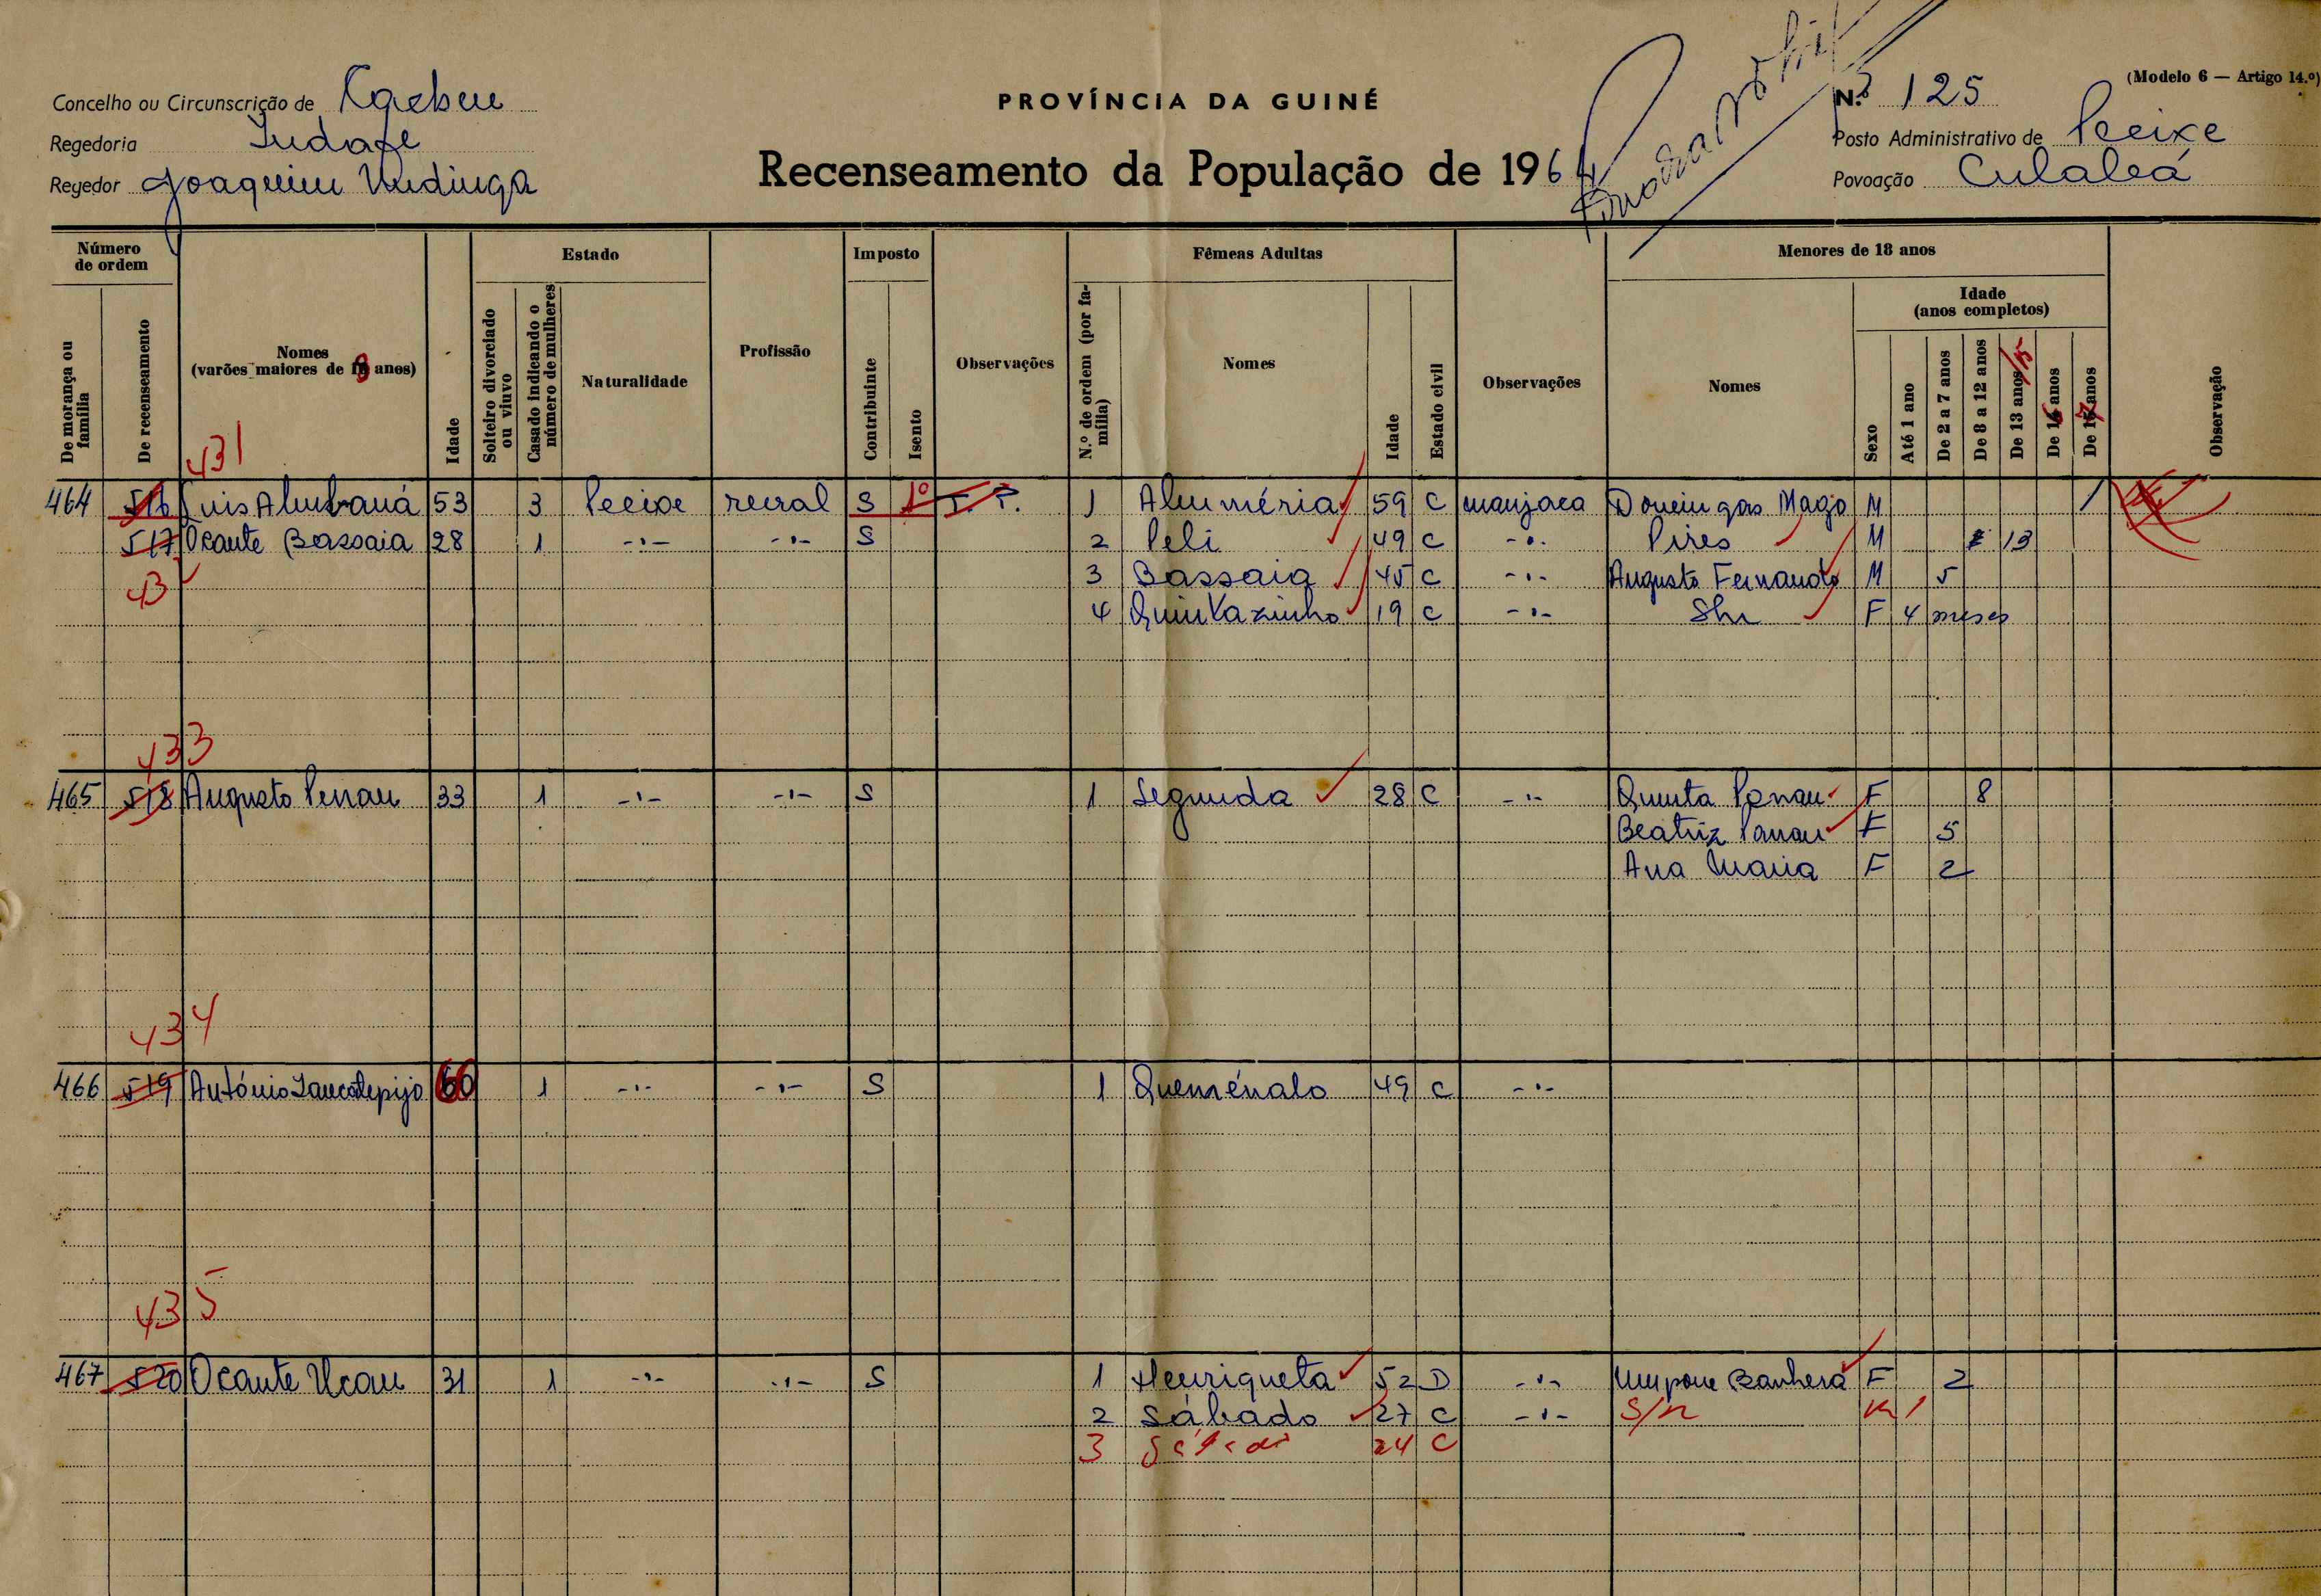 Concelho ou Circunscrição de Kaeheu
PROVÍNCIA DA GUINÉ
N.º 125
(Modelo 6 — Artigo 14.º)
Regedoria
Posto Administrativo de Peeixe
Regedor Joaquim
Recenseamento da População de 1964
Povoação Culaleá
Número de ordem
De morança ou família
De recenseamento
Nomes
(varões maiores de 18 anos)
Idade
Estado
Solteiro divorciado ou viuvo
Casado indicando o número de mulheres
Naturalidade
Profissão
Imposto
Contribuinte
Isento
Observações
Fêmeas Adultas
N.º de ordem (por família)
Nomes
Idade
Estado civil
Observações
Menores de 18 anos
Nomes
Sexo
Idade
(anos completos)
Até 1 ano
De 2 a 7 anos
De 8 a 12 anos
De 13 anos/15
De 16 anos
De 17 anos
Observação
431
464 516 Luis Alubaná 53 3 Peeixe rural S 1º T. P. 1 Aluméria 59 C manjaca Domingos Mago M 1
517 Ocante Bassaia 28 1 -"- -"- S 2 Peli 49 C -"- Pires M 13
43 3 Bassaia 45 C -"- Augusto Fernando M 5
4 Quintazinho 19 C -"- F 4 meses
433
465 518 Augusto Penau 33 1 -"- -"- S 1 Segunda 28 C -"- Quinta Penau F 8
Beatriz Panau F 5
Ana Maria F 2
434
466 519 António 60 1 -"- -"- S 1 Quenénalo 49 C -"-
435
467 520 Ocante Ucau 31 1 -"- -"- S 1 Henriqueta 52 D -"- Umpone Banhera F 2
2 Sábado 27 C -"- S/n M 1
3 24 C